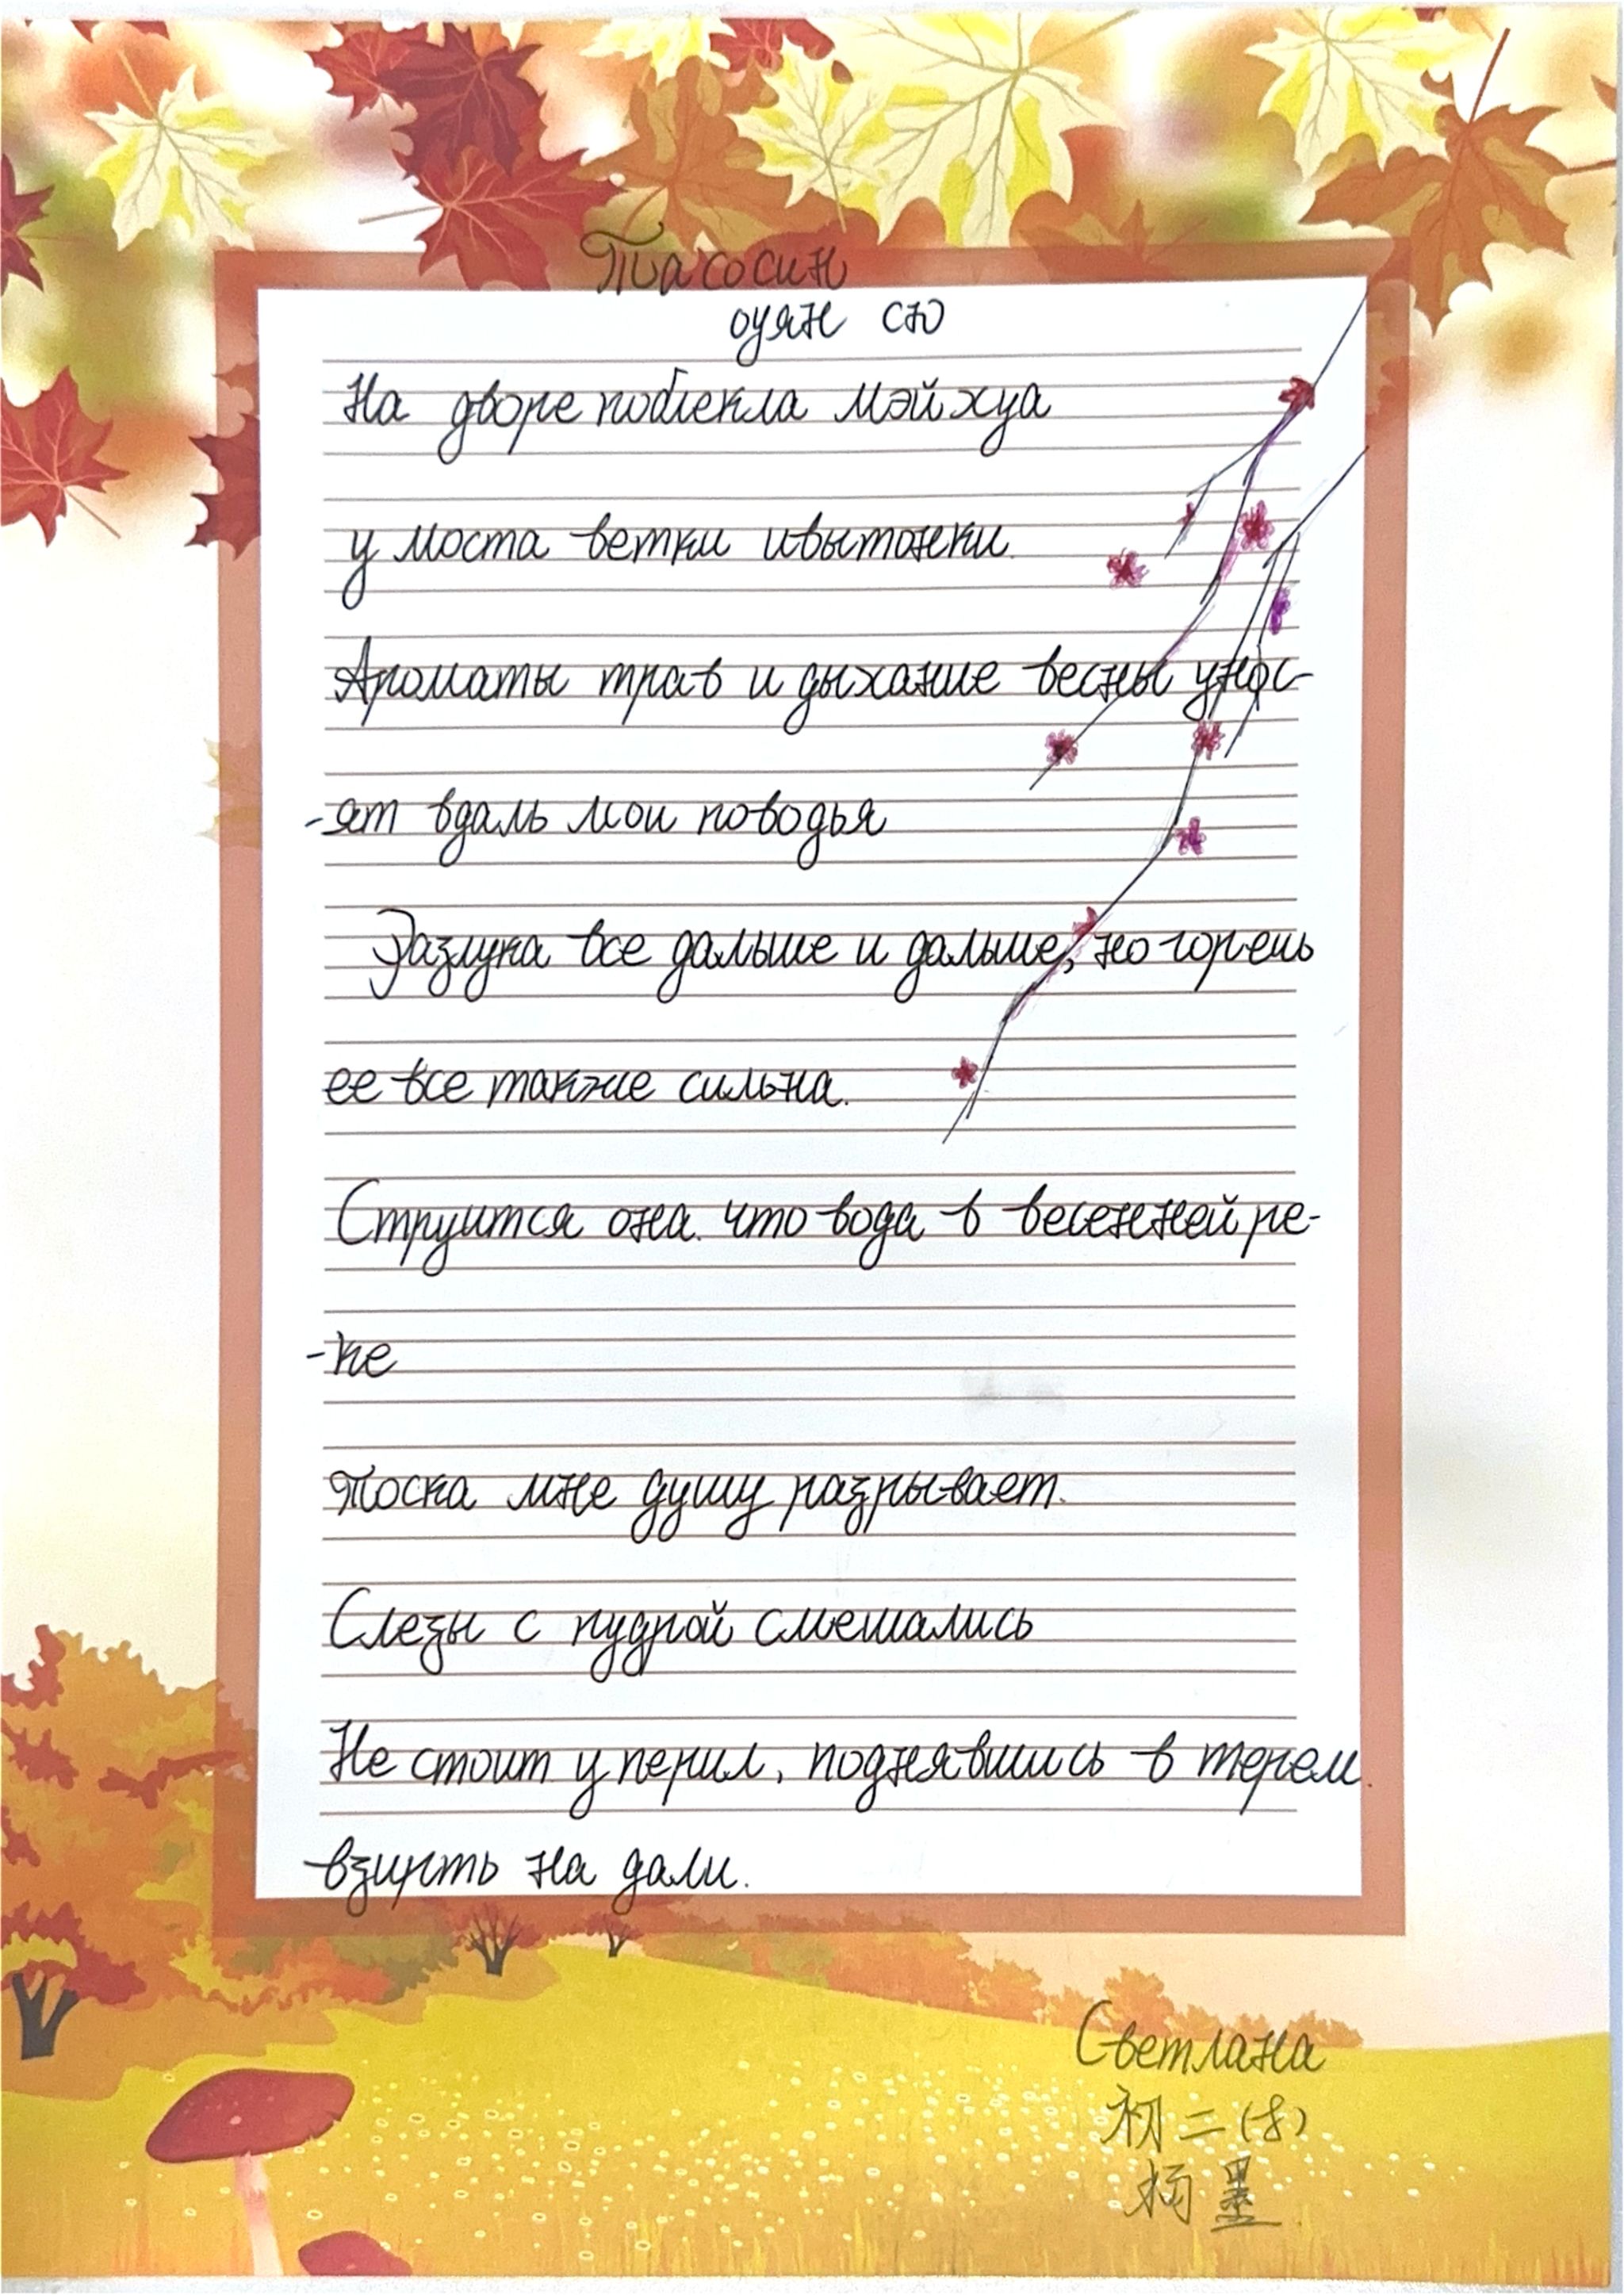 Тасосин
оуян сю
На дворе поблекла мэйхуа
у моста ветки ивы тонки.
Ароматы трав и дыхание весны унос-
-ят вдаль мои поводья
Разлука все дальше и дальше, но горечь
ее все также сильна.
Струится она. что вода в весенней ре-
-ке
Тоска мне душу разрывает.
Слезы с пудрой смешались
Не стоит у перил, поднявшись в терем.
взирть на дали.
Светлана
初二(8)
杨墨